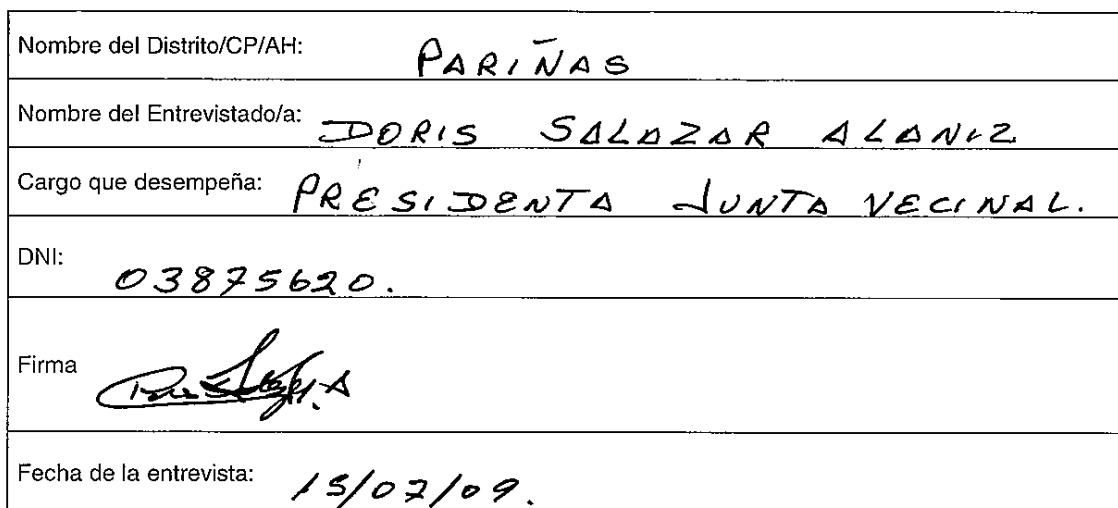 Nombre del Distrito/CP/AH: PARIÑAS
Nombre del Entrevistado/a: DORIS SALAZAR ALANIZ
Cargo que desempeña: PRESIDENTA JUNTA VECINAL.
DNI: 03875620.
Firma
Fecha de la entrevista: 15/07/09.